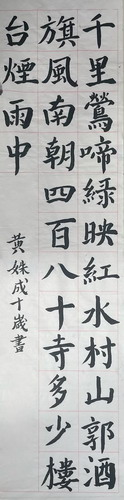 千里鶯啼綠映紅水村山郭酒
旗風南朝四百八十寺多少樓
台煙雨中
黄姝成十歲書